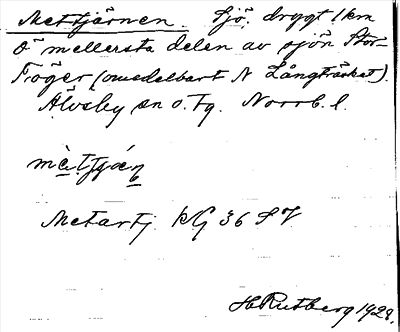 Mettjärnen. Sjö, drygt 1 km
Ö mellersta delen av sjön Stor-
Fröger (omedelbart N Långträsket).
Älvsby sn o. Fg. Norrb. l.
Metartj. KG 36 SV
H Rutberg 1928.